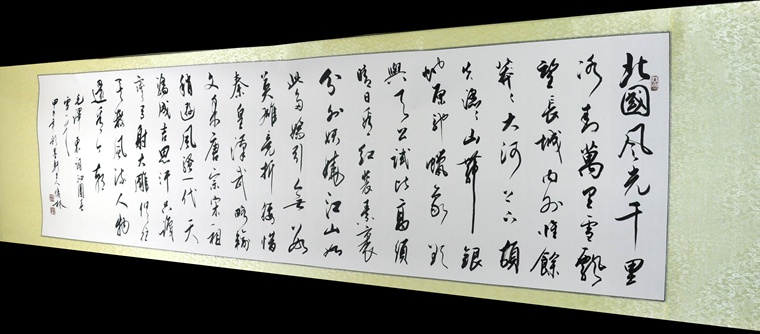 北國风光千里
冰封萬里雪飄
望長城内外惟餘
莽〻大河上下頓
失滔〻山舞銀
蛇原驰蠟象欲
與天公試比高須
晴日看红装素裹
分外妖娆江山如
此多嬌引無数
英雄竞折腰惜
秦皇漢武略输
文采唐宗宋祖
稍逊风骚一代天
骄成吉思汗只識
弯弓射大雕俱往
矣数风流人物
還看今朝
毛澤東词沁園春
雪一首
甲午年